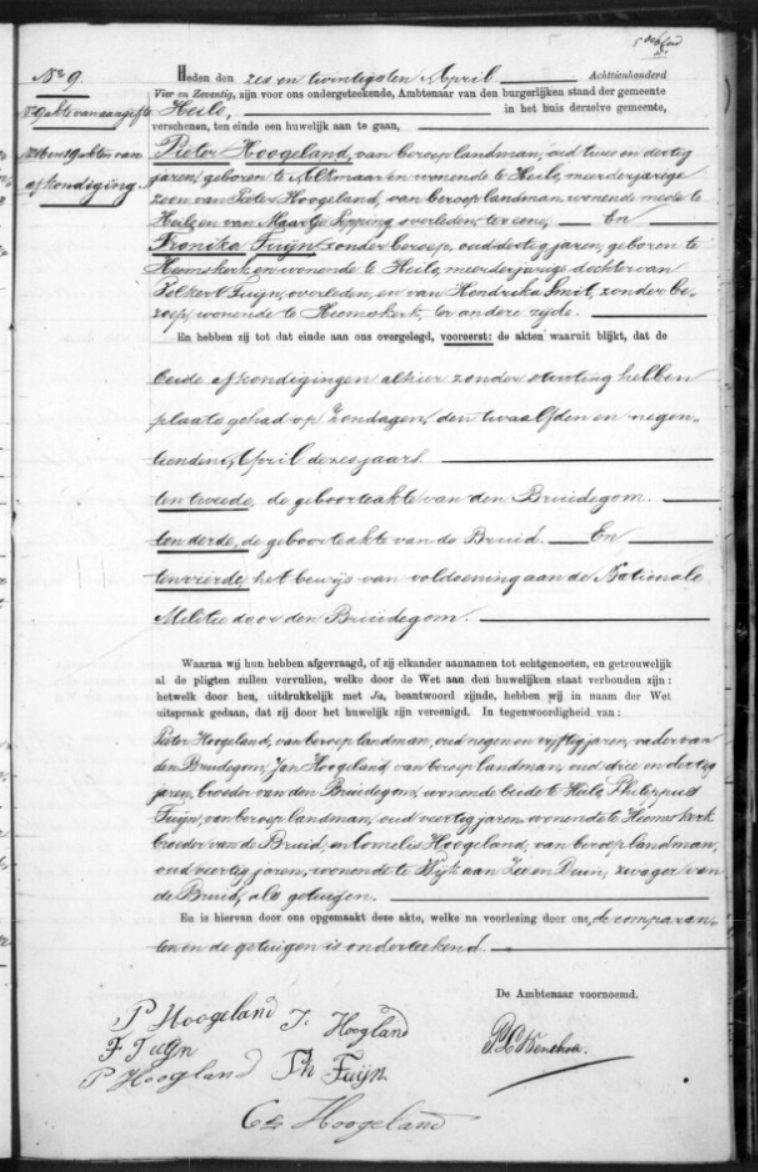 No 9.
Heden den zes en twintigsten April Achttienhonderd
Vier en Zeventig, zijn voor ons ondergeteekende, Ambtenaar van den burgerlijken stand der gemeente
No 9 akte van aangifte
Heilo, in het huis derzelve gemeente,
verschenen, ten einde een huwelijk aan te gaan,
No 16 en 19 akten van
afkondiging.
Pieter Hoogeland, van beroep landman, oud twee en dertig
jaren, geboren te Alkmaar en wonende te Heilo, meerderjarige
zoon van Pieter Hoogeland, van beroep landman, wonende mede te
Heilo, en van Maartje Epping overleden, ter eene, En
Fronika Tuijn zonder beroep, oud dertig jaren, geboren te
Heemskerk, en wonende te Heilo, meerderjarige dochter van
Volkert Tuijn, overleden, en van Hendrika Smit, zonder be-
roep, wonende te Heemskerk, ter andere zijde.
En hebben zij tot dat einde aan ons overgelegd, vooreerst: de akten waaruit blijkt, dat de
beide afkondigingen alhier zonder stuiting hebben
plaats gehad op Zondagen, den twaalfden en negen-
tienden April dezes jaars.
ten tweede, de geboorteakte van den Bruidegom.
ten derde, de geboorteakte van de Bruid. En
ten vierde, het bewijs van voldoening aan de Nationale
Militie door den Bruidegom.
Waarna wij hun hebben afgevraagd, of zij elkander aannamen tot echtgenooten, en getrouwelijk
al de pligten zullen vervullen, welke door de Wet aan den huwelijken staat verbonden zijn:
hetwelk door hen, uitdrukkelijk met Ja, beantwoord zijnde, hebben wij in naam der Wet
uitspraak gedaan, dat zij door het huwelijk zijn vereenigd. In tegenwoordigheid van:
Pieter Hoogeland, van beroep landman, oud negen en vijftig jaren, vader van
den Bruidegom, Jan Hoogeland, van beroep landman, oud drie en dertig
jaren, broeder van den Bruidegom, wonende beide te Heilo, Philippus
Tuijn, van beroep landman, oud veertig jaren, wonende te Heemskerk
broeder van de Bruid, en Cornelis Hoogeland, van beroep landman,
oud veertig jaren, wonende te Wijk aan Zee en Duin, zwager van
de Bruid, als getuigen.
En is hiervan door ons opgemaakt deze akte, welke na voorlezing door ons, de comparan-
ten en de getuigen is onderteekend.
De Ambtenaar voornoemd.
P Hoogeland J. Hoogland
F Tuijn
P Hoogland Ph Tuijn.
Cs Hoogeland